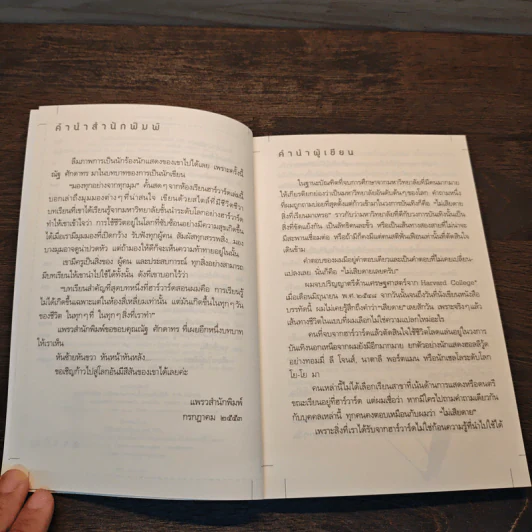 คำนำสำนักพิมพ์
ลืมภาพการเป็นนักร้องนักแสดงของเขาไปได้เลย เพราะครั้งนี้
ณัฐ ศักดาทร มาในบทบาทของการเป็นนักเขียน
"มองทุกอย่างจากทุกมุม" ต้นสดๆ จากห้องเรียนฮาร์วาร์ดเล่มนี้
บอกเล่าถึงมุมมองต่างๆ ที่น่าสนใจ เขียนด้วยสไตล์ที่มีชีวิตชีวา
บทเรียนที่เขาได้เรียนรู้จากมหาวิทยาลัยชั้นนำระดับโลกอย่างฮาร์วาร์ด
ทำให้เขาเข้าใจว่า การใช้ชีวิตอยู่ในโลกที่ซับซ้อนอย่างมีความสุขเกิดขึ้น
ได้เมื่อเรามีมุมมองที่เปิดกว้าง รับฟังทุกผู้คน สัมผัสทุกสรรพสิ่ง มอง
บางมุมอาจดูน่าปวดหัว แต่ถ้ามองให้ดีก็จะเห็นความท้าทายอยู่ในนั้น
เขามีครูเป็นสิ่งของ ผู้คน และประสบการณ์ ทุกสิ่งอย่างสามารถ
มีบทเรียนให้เขานำไปใช้ได้ทั้งนั้น ดังที่เขาบอกไว้ว่า
"บทเรียนสำคัญที่สุดบทหนึ่งที่ฮาร์วาร์ดสอนผมคือ การเรียนรู้
ไม่ได้เกิดขึ้นเฉพาะแต่ในห้องสี่เหลี่ยมเท่านั้น แต่มันเกิดขึ้นในทุกๆ วัน
ของชีวิต ในทุกๆ ที่ ในทุกๆ สิ่งที่เราทำ"
แพรวสำนักพิมพ์ขอขอบคุณณัฐ ศักดาทร ที่เผยอีกหนึ่งบทบาท
ให้เราเห็น
หันซ้ายหันขวา หันหน้าหันหลัง...
ขอเชิญก้าวไปสู่โลกอันมีสีสันของเขาได้เลยค่ะ
แพรวสำนักพิมพ์
กรกฎาคม ๒๕๕๓
คำนำผู้เขียน
ในฐานะบัณฑิตที่จบการศึกษาจากมหาวิทยาลัยที่มีคนมากมาย
ให้เกียรติยกย่องว่าเป็นมหาวิทยาลัยอันดับต้นๆ ของโลก คำถามหนึ่ง
ที่ผมถูกถามบ่อยที่สุดตั้งแต่ก้าวเข้ามาในวงการบันเทิงก็คือ "ไม่เสียดาย
สิ่งที่เรียนมาเหรอ" ราวกับว่ามหาวิทยาลัยที่ดีกับวงการบันเทิงนั้นเป็น
สิ่งที่ขัดแย้งกัน เป็นลิขิตคนละขั้ว หรือเป็นเส้นทางสองสายที่ไม่น่าจะ
มีสะพานเชื่อมต่อ หรือถ้ามีก็คงมีแต่คนสติเพี้ยนเท่านั้นที่คิดเดิน
ข้าม
คำตอบของผมมีอยู่คำตอบเดียวและเป็นคำตอบที่ไม่เคยเปลี่ยน-
แปลงเลย นั่นก็คือ "ไม่เสียดายเลยครับ"
ผมจบปริญญาตรีด้านเศรษฐศาสตร์จาก Harvard College
เมื่อเดือนมิถุนายน พ.ศ. ๒๕๔๘ จากวันนั้นจนถึงวันที่นั่งเขียนหนังสือ
บรรทัดนี้ ผมไม่เคยรู้สึกถึงคำว่า "เสียดาย" เลยสักวัน เพราะจริงๆ แล้ว
เส้นทางชีวิตในแบบที่ผมเลือกไม่ใช่ความแปลกใหม่อะไร
คนที่จบจากฮาร์วาร์ดแล้วตัดสินใจใช้ชีวิตโลดแล่นอยู่ในวงการ
บันเทิงนอกเหนือจากผมยังมีอีกมากมาย ยกตัวอย่างนักแสดงฮอลลีวู้ด
อย่างทอมมี่ ลี โจนส์, นาตาลี พอร์ตแมน หรือนักเชลโลระดับโลก
โย-โย มา
คนเหล่านี้ไม่ได้เลือกเรียนสาขาที่เน้นด้านการแสดงหรือดนตรี
ขณะเรียนอยู่ที่ฮาร์วาร์ด แต่ผมเชื่อว่า หากมีใครไปถามคำถามเดียวกัน
กับบุคคลเหล่านี้ ทุกคนคงตอบเหมือนกับผมว่า "ไม่เสียดาย"
เพราะสิ่งที่เราได้รับจากฮาร์วาร์ดไม่ใช่ก้อนความรู้ที่นำไปใช้ได้